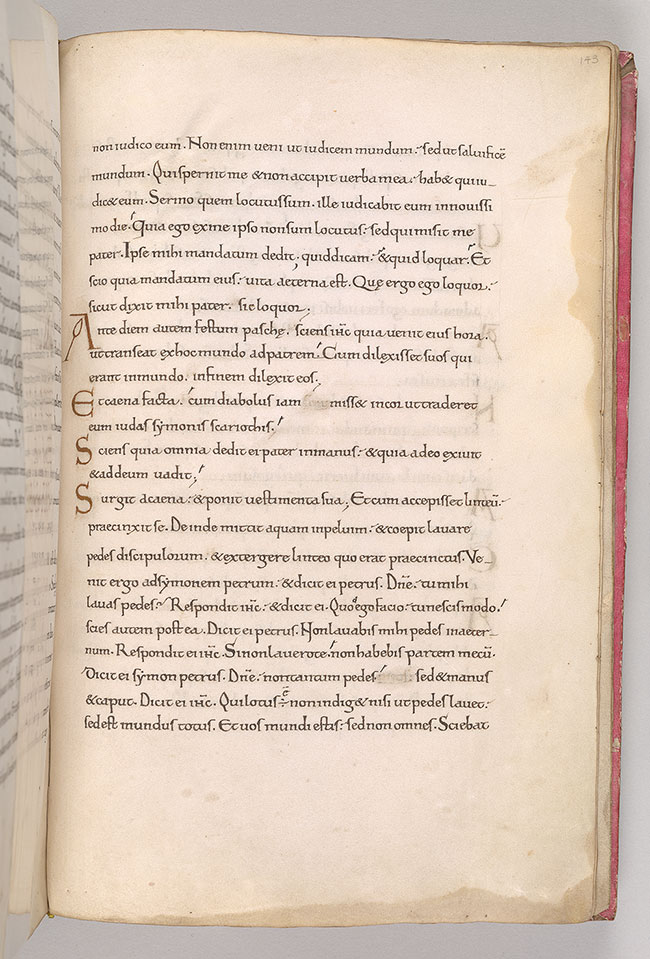 143
non iudico eum. Non enim ueni ut iudicem mundum: sed ut saluificē
mundum. Qui spernit me & non accipit uerba mea: hab& qui iu-
dic& eum. Sermo quem locutus sum. ille iudicabit eum in nouissi
mo die. Quia ego ex me ipso non sum locutus: sed qui misit me
pater. Ipse mihi mandatum dedit, quid dicam: & quid loquar. Et
scio quia mandatum eius: uita aeterna est. Quę ergo ego loquor:
sicut dixit mihi pater. sic loquor;
Ante diem autem festum paschę. sciens ihc quia uenit eius hora.
ut transeat ex hoc mundo ad patrem. Cum dilexisset suos qui
erant in mundo. in finem dilexit eos;
Et caena facta. cum diabolus iam miss& in cor ut traderet
eum iudas symonis scariothis.
Sciens quia omnia dedit ei pater in manus: & quia a deo exiuit
& ad deum uadit;
Surgit a caena: & ponit uestimenta sua; Et cum accepisset linteū.
praecinxit se. Deinde mittit aquam in peluim: & coepit lauare
pedes discipulorum. & extergere linteo quo erat praecinctus. Ve-
nit ergo ad symonem petrum: & dicit ei petrus. Dn̄e: tu mihi
lauas pedes? Respondit ihc: & dicit ei. Quod ego facio: tu nescis modo.
scies autem post ea. Dicit ei petrus. Non lauabis mihi pedes in aeter-
num. Respondit ei ihc. Si non lauero te: non habebis partem mecū.
Dicit ei symon petrus. Dn̄e: non tantum pedes: sed & manus
& caput. Dicit ei ihc. Qui lotus ē non indig& nisi ut pedes lauet:
sed est mundus totus. Et uos mundi estis: sed non omnes. Sciebat